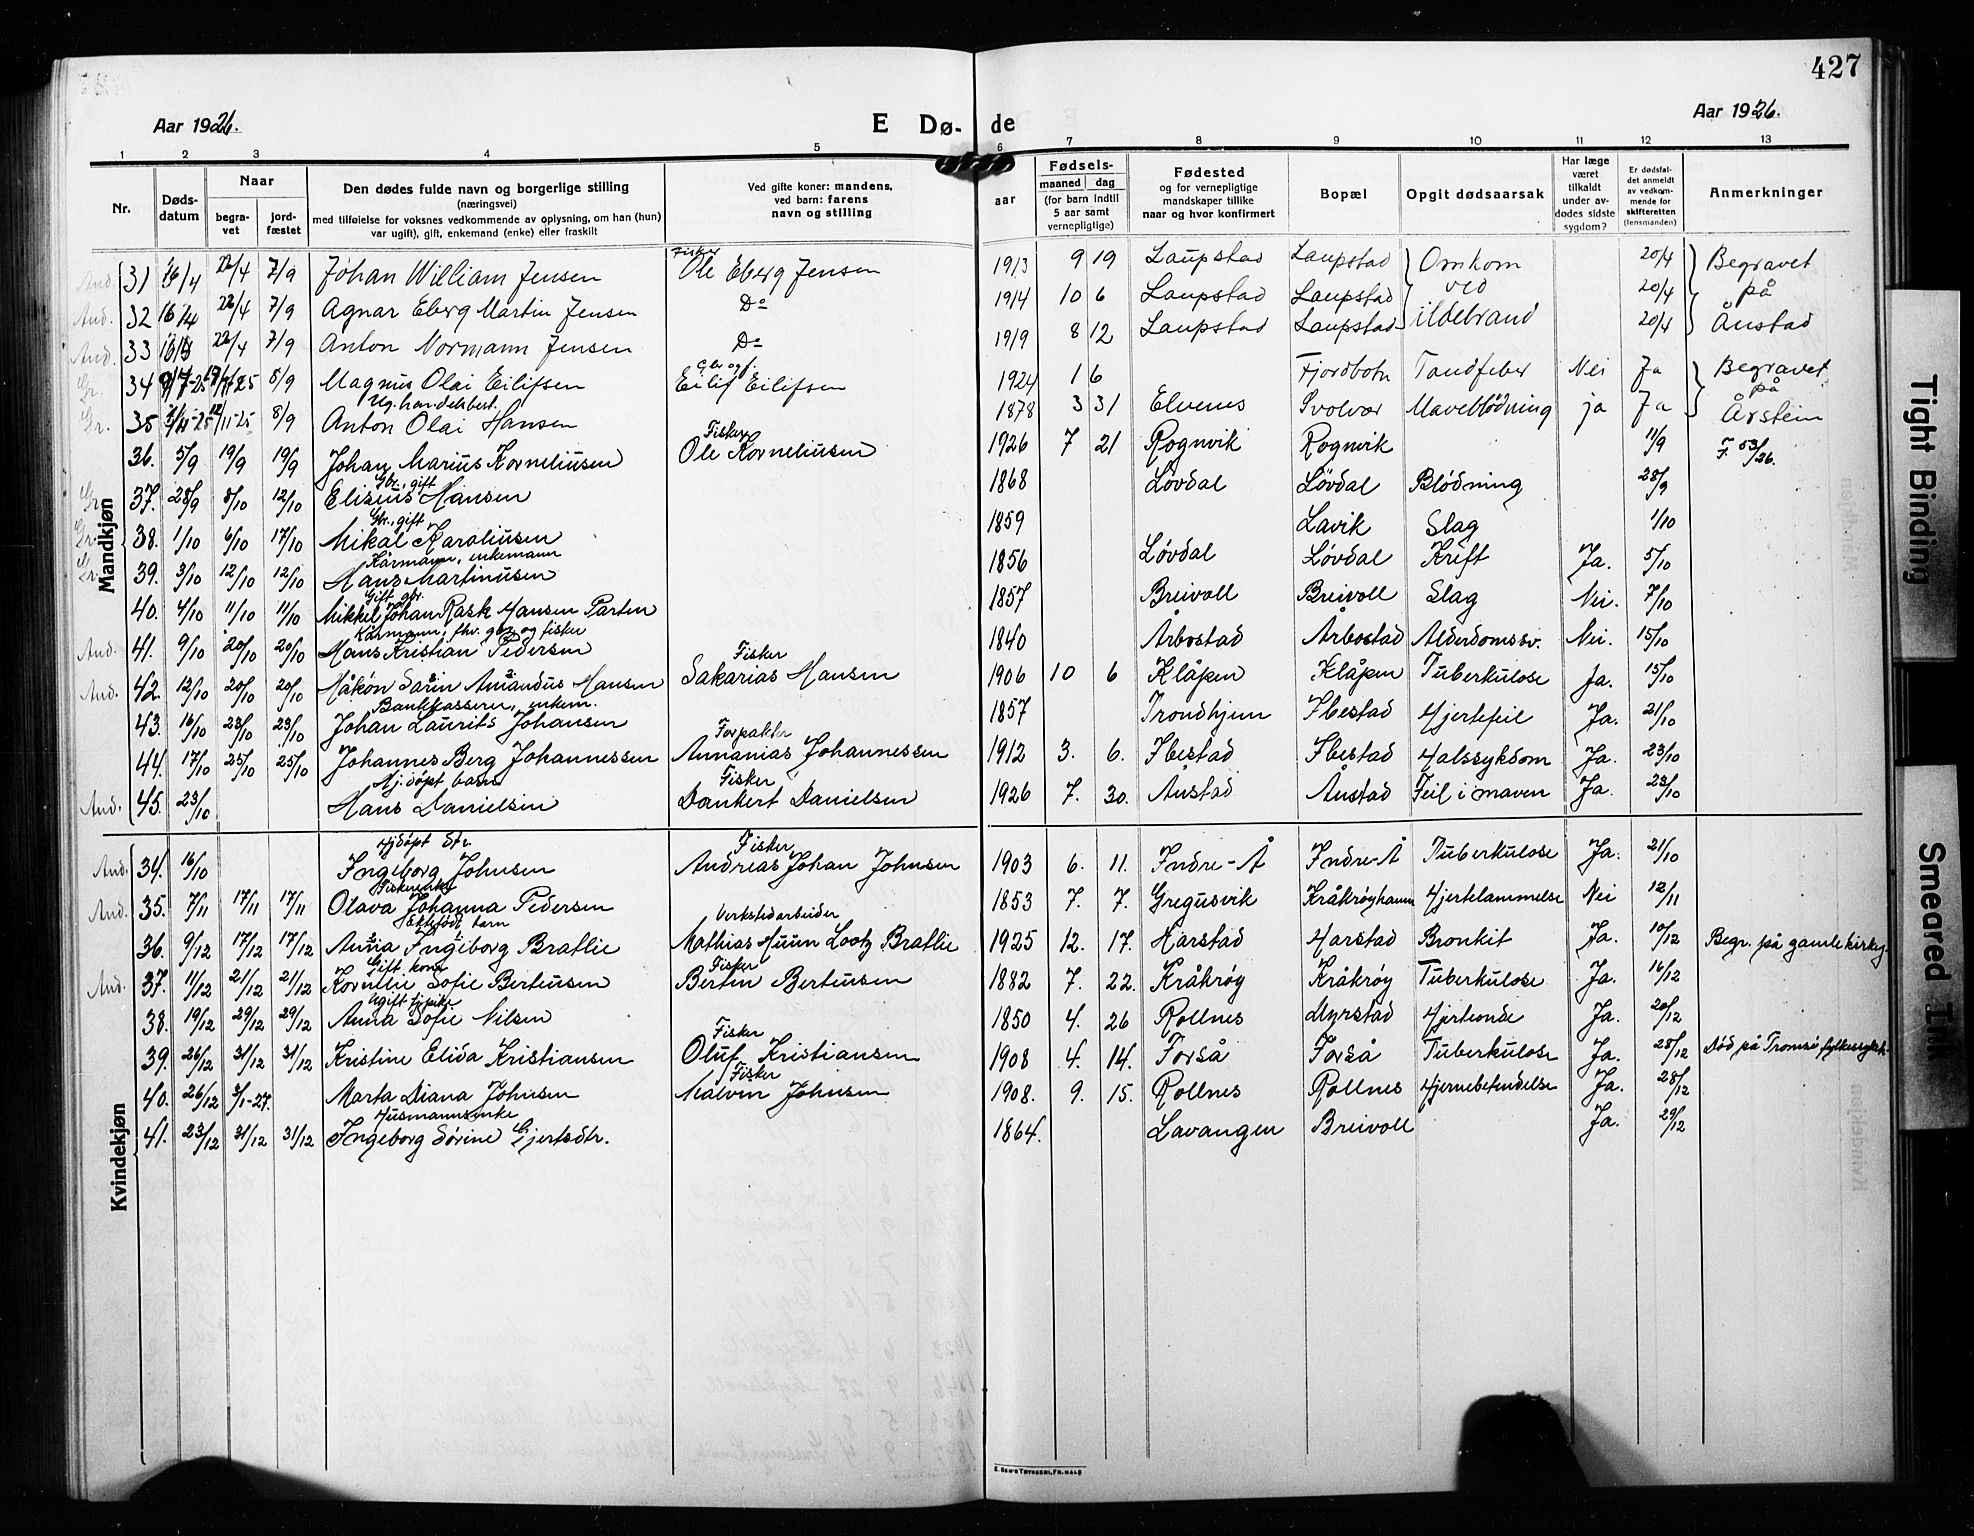 427
Aar 1926.
E Dø-
de
Aar 1926.
1 2 3 4 5 6 7 8 9 10 11 12 13
Nr.
Døds-
datum
Naar
begra-
vet
jord-
fæstet
Den dødes fulde navn og borgerlige stilling
(næringsvei)
med tilføielse for voksnes vedkommende av oplysning, om han (hun)
var ugift), gift, enkemand (enke) eller fraskilt
Ved gifte koner: mandens,
ved barn: farens
navn og stilling
aar
Fødsels-
maaned dag
(for barn indtil
5 aar samt
vernepligtige)
Fødested
og for vernepligtige
mandskaper tillike
naar og hvor konfirmert
Bopæl
Opgit dødsaarsak
Har læge
været
tilkaldt
under av-
dødes sidste
sygdom?
Er dødsfal-
det anmeldt
av vedkom-
mende for
skifteretten
(lensmanden)
Anmerkninger
Mandkjøn
Fisker
And. 31 16/4 22/4 7/9 Johan William Jensen Ole Eberg Jensen 1913 9 19 Laupstad Laupstad Omkom 20/4 Begravet
And. 32 16/4 22/4 7/9 Agnar Eberg Martin Jensen Do 1914 10 6 Laupstad Laupstad ved 20/4 på
And. 33 22/4 7/9 Anton Normann Jensen Do 1919 8 12 Laupstad Laupstad ildebrand 20/4 Ånstad
Gbr og f.
Gr. 34 8/9 Magnus Olai Eilifsen Eilif Eilifsen 1924 1 6 Fjordbotn Tandfeber Nei Ja Begravet
på
Ug. handelsbest.
Gr. 35 8/9 Anton Olai Hansen 1878 3 31 Elvenes Svolvær Maveblødning ja Ja Årstein
Fisker
36. 5/9 19/9 19/9 Johan Marius Korneliusen Ole Korneliusen 1926 7 21 Rognvik Rognvik 11/9 F. 53/26.
Gbr., gift
Gr. 37. 28/9 8/10 12/10 Eliseus Hansen 1868 Løvdal Løvdal Blødning 28/9
Gbr., gift
Gr. 38. 1/10 6/10 17/10 Mikal Karoliusen 1859 Lavik Slag 1/10
Kårmann, enkemann
Gr. 39. 3/10 12/10 12/10 Hans Martinusen 1856 Løvdal Løvdal Kreft Ja. 5/10
Gift gbr.
40. 4/10 11/10 11/10 Mikkel Johan Rask Hansen Parten 1857 Breivoll Breivoll Slag Nei. 7/10
Kårmann, fhv. gbr og fisker
And. 41. 9/10 20/10 20/10 Hans Kristian Pedersen 1840 Årbostad Årbostad Alderdomssv. Nei. 15/10
Fisker
And. 42. 12/10 20/10 20/10 Håkon Sarin Amandus Hansen Sakarias Hansen 1906 10 6 Klåpen Klåpen Tuberkulose Ja. 15/10
Bankkasserer, enkem.
43. 16/10 23/10 23/10 Johan Laurits Johansen 1857 Trondhjem Ibestad Hjertefeil Ja. 21/10
Forpakter
44. 17/10 25/10 25/10 Johannes Berg Johannessen Annanias Johannessen 1912 3. 6. Ibestad Ibestad Halssykdom Ja. 23/10
Hj. døpt barn Fisker
And. 45. 23/10 Hans Danielsen Dankert Danielsen 1926 7. 30. Ånstad Ånstad Feil i maven Ja. 23/10
Kvindekjøn
Hjdøpt dtr. Fisker
And. 34. 16/10 Ingeborg Johnsen Andreas Johan Johnsen 1903 6. 11. Indre-Å Indre-Å Tuberkulose Ja. 21/10
Fiskerenke
And. 35. 7/11 17/11 17/11 Olava Johanna Pedersen 1853 7. 7. Gregusvik Kråkrøyhamn Hjertelammelse Nei 12/11
Ektefødt barn Verkstedarbeider
36. 9/12 17/12 17/12 Anna Ingeborg Bratlie Mathias Huun Lootz Bratlie 1925 12. 17. Harstad Harstad Bronkit Ja. 10/12 Begr. på gamle kirkeg.
Gift kone Fisker
And. 37. 11/12 21/12 21/12 Kornelie Sofie Berteusen Bertin Berteusen 1882 7. 22. Kråkrøy Kråkrøy Tuberkulose Ja. 16/12
Ugift pike
38. 19/12 29/12 29/12 Anna Sofie Nilsen 1850 4. 26 Rollnes Myrstad Hjerteonde Ja. 20/12
Fisker
39. 26/12 31/12 31/12 Kristine Elida Kristiansen Oluf Kristiansen 1908 4. 14. Forså Forså Tuberkulose Ja. 28/12 Død på Tromsø fylkessykeh.
Fisker
40. 26/12 3/1-27. Marta Diana Johnsen Malvin Johnsen 1908. 9. 15. Rollnes Rollnes Hjernebetendelse Ja. 28/12
Husmannsenke
41. 23/12 31/12 31/12 Ingeborg Sørine Gjertsdtr. 1864. Lavangen Breivoll Ja. 29/12
Tight Binding
Smeared Ink